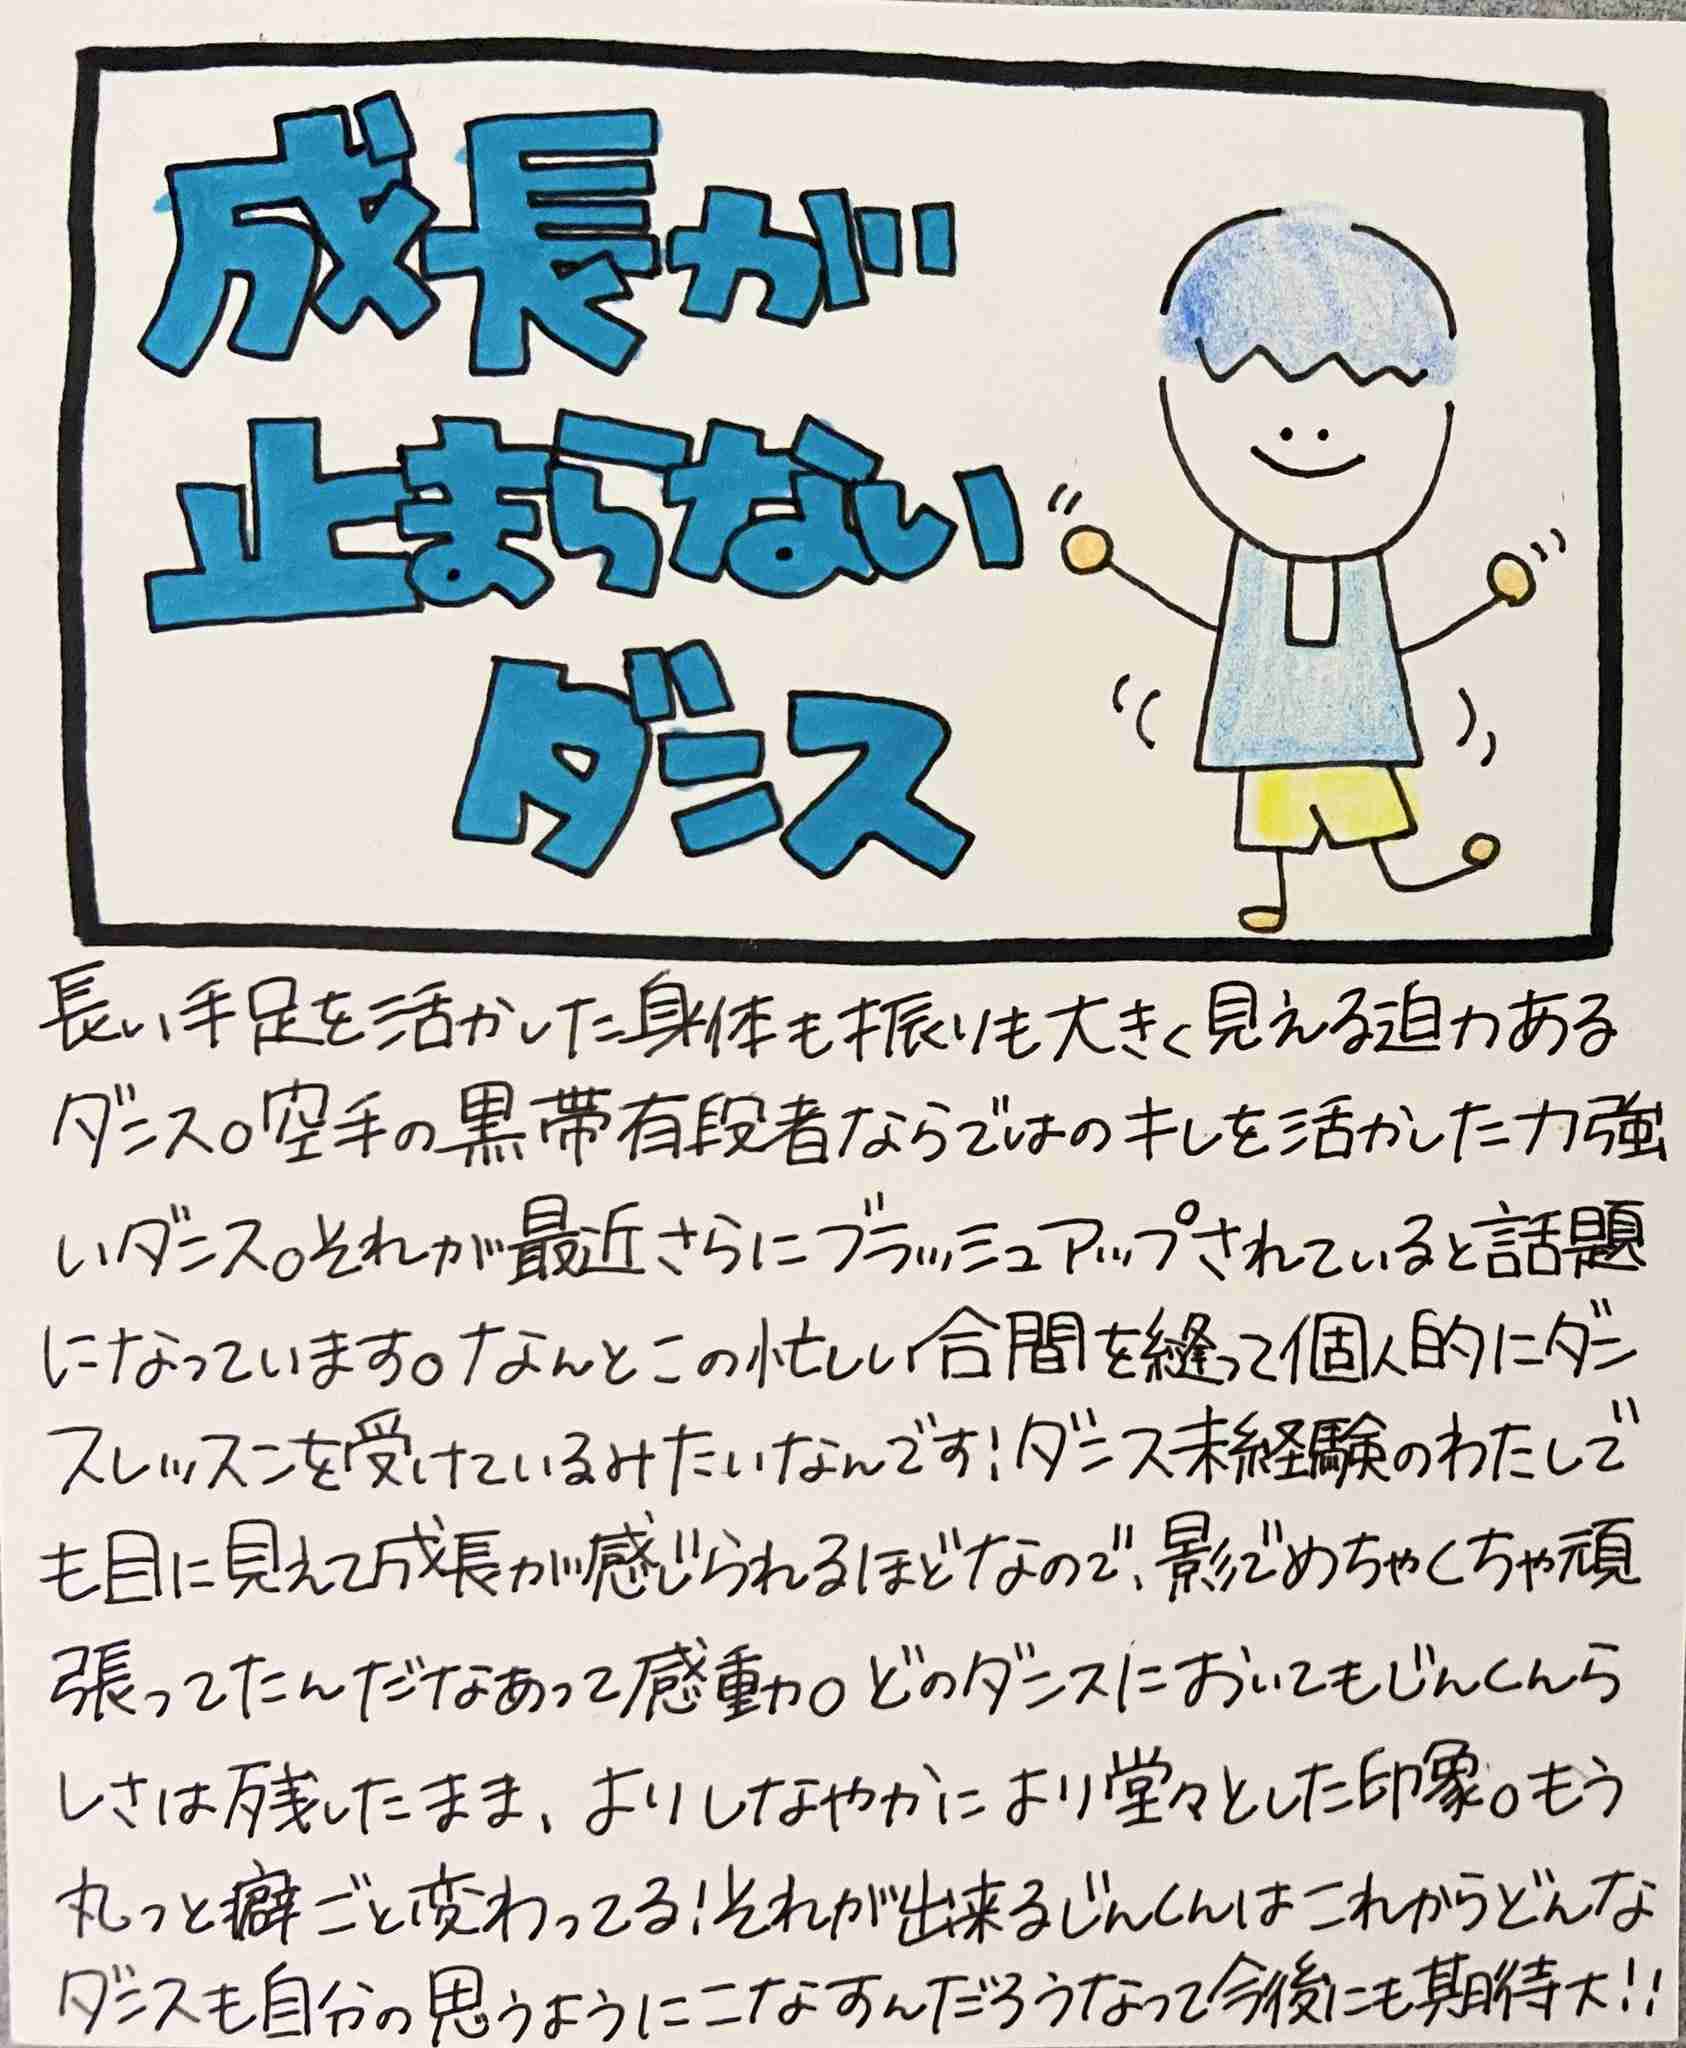 成長が
止まらない
ダンス
長い手足を活かした身体も振りも大きく見える迫力ある
ダンス。空手の黒帯有段者ならではのキレを活かした力強
いダンス。それが最近さらにブラッシュアップされていると話題
になっています。なんとこの忙しい合間を縫って個人的にダン
スレッスンを受けているみたいなんです!ダンス未経験のわたしで
も目に見えて成長が感じられるほどなので、影でめちゃくちゃ頑
張ってたんだなあって感動。どのダンスにおいてもじんくんら
しさは残したまま、よりしなやかにより堂々とした印象。もう
丸っと癖ごと変わってる!それが出来るじんくんはこれからどんな
ダンスも自分の思うようにこなすんだろうなって今後にも期待大!!